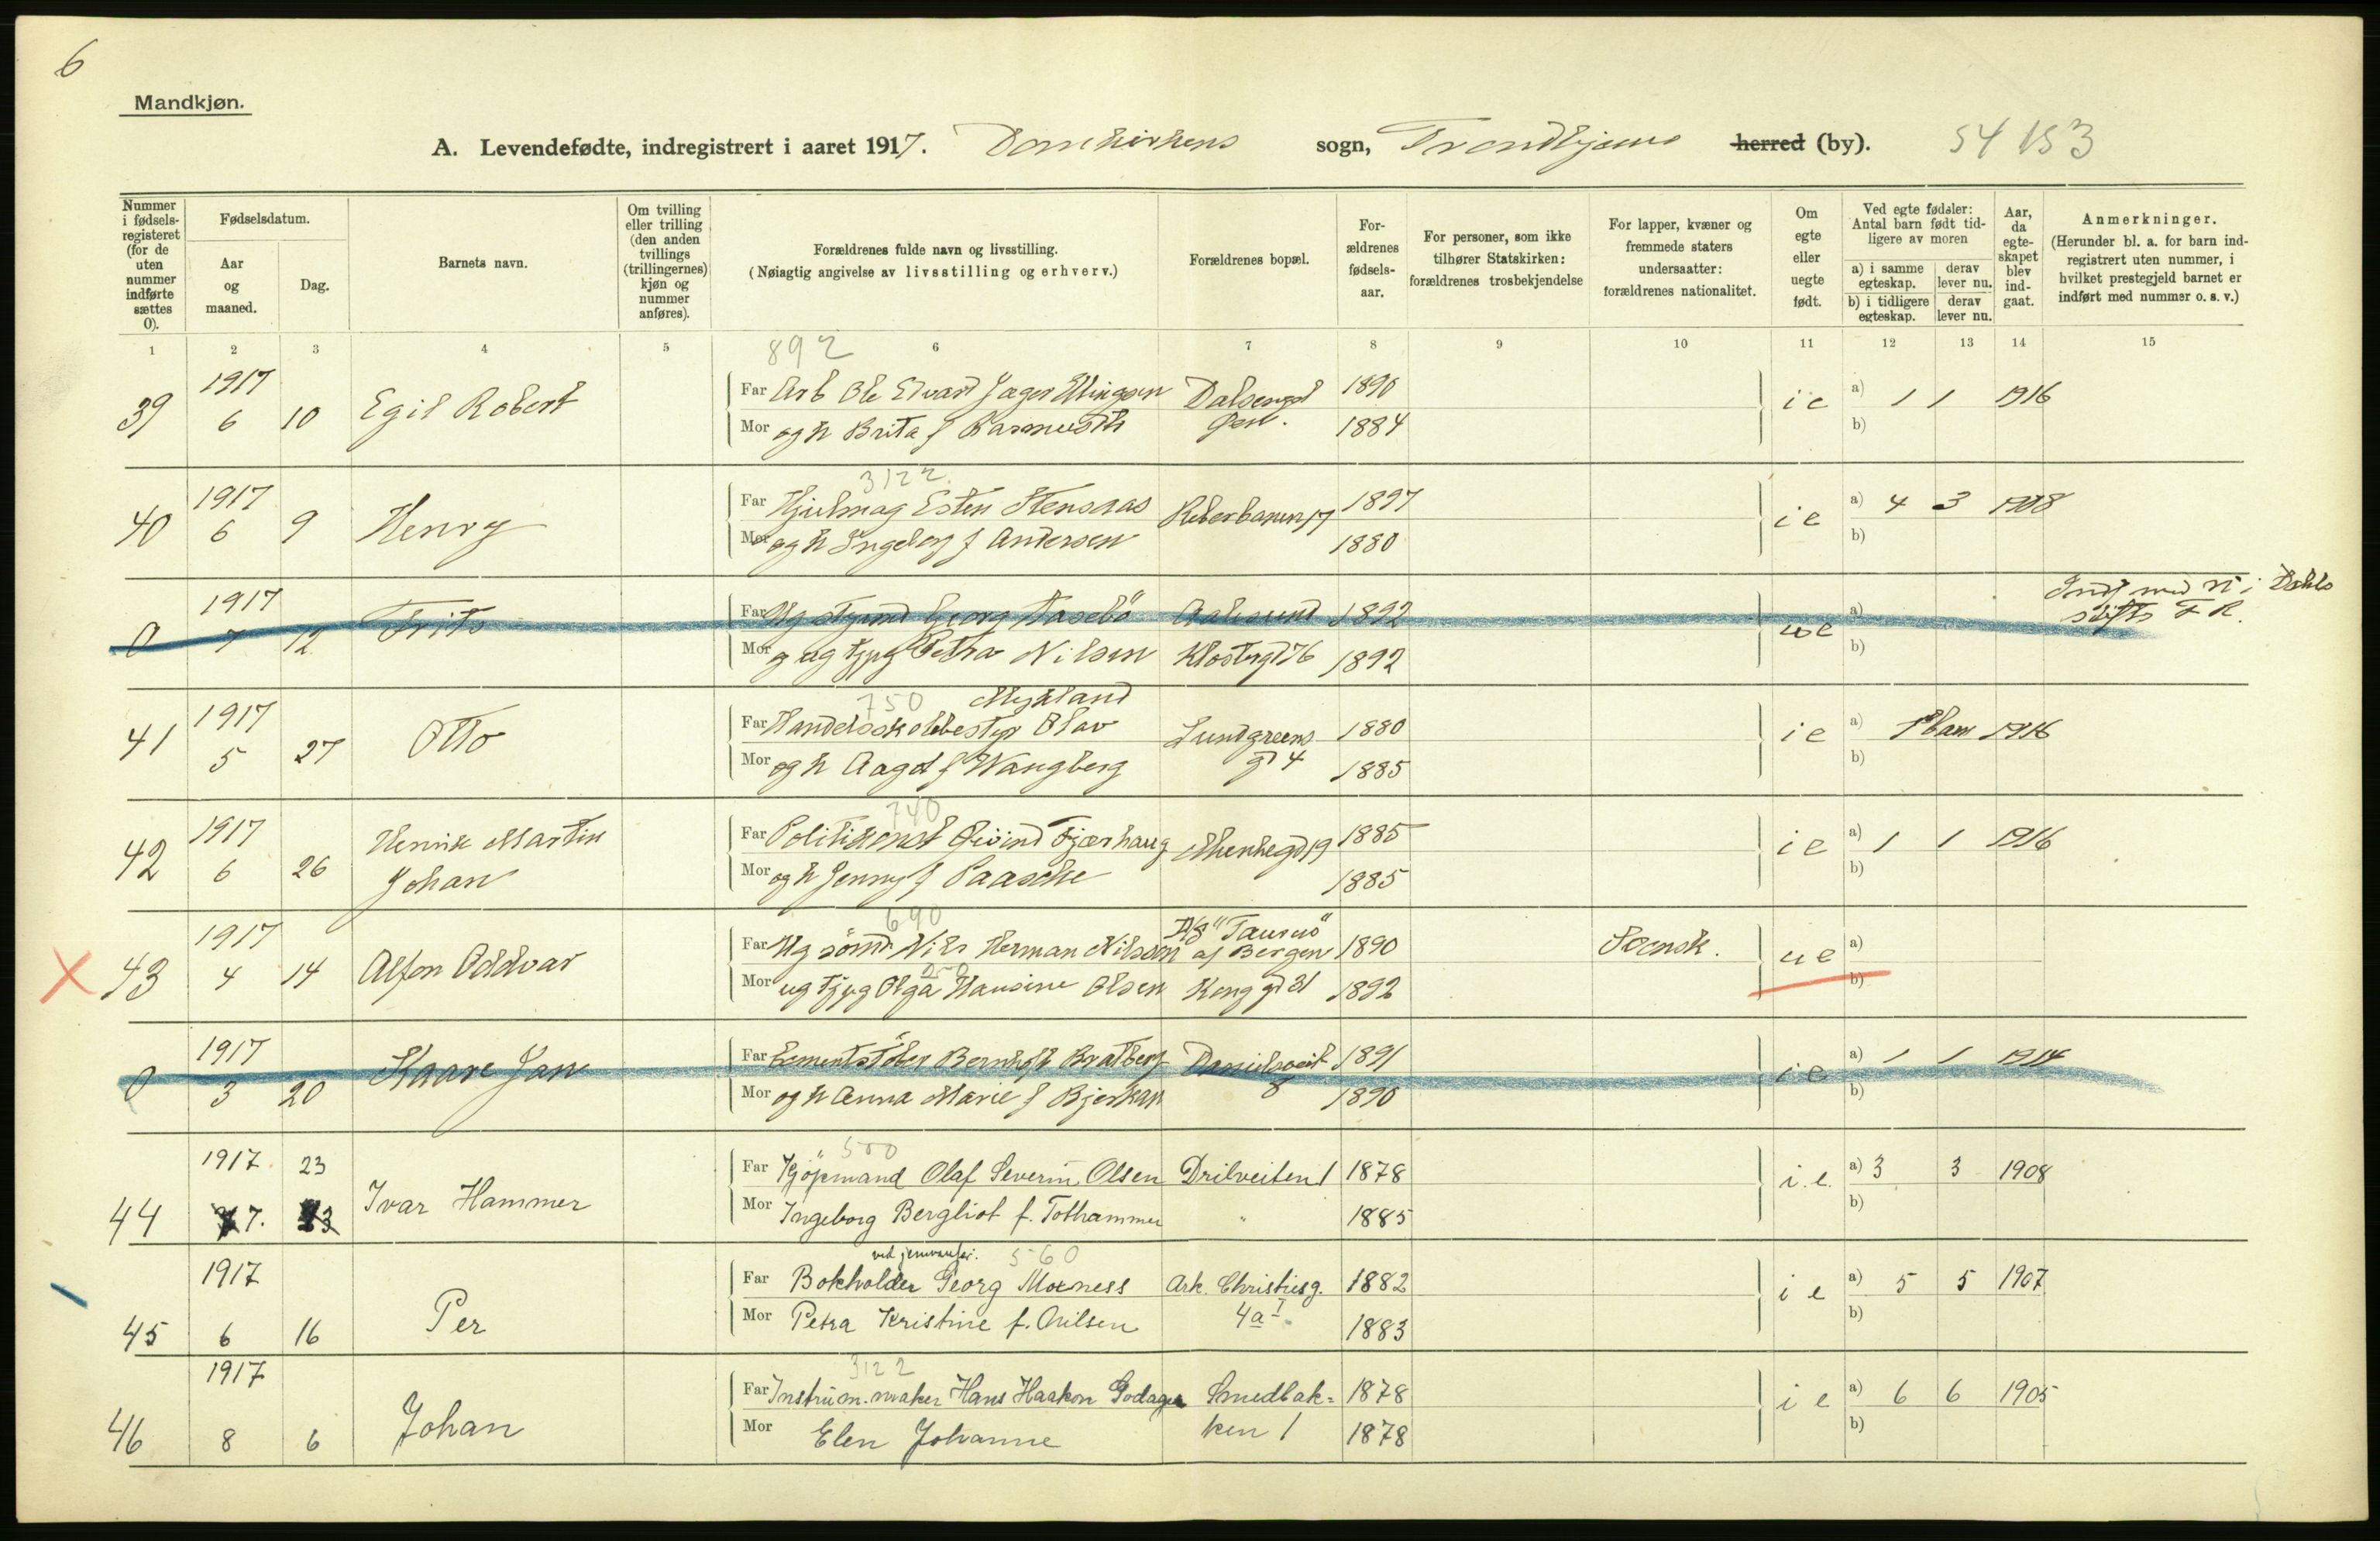 6
Mandkjøn.
A. Levendefødte, indregistrert i aaret 1917. Domkirkens sogn, Trondhjems herred (by). 54 153
Nummer i fødsels-registeret (for de uten nummer indførte sættes 0).
Fødselsdatum.
Aar og maaned.
Dag.
Barnets navn.
Om tvilling eller trilling (den anden tvillings (trillingernes) kjøn og nummer anføres).
Forældrenes fulde navn og livsstilling.
(Nøiagtig angivelse av livsstilling og erhverv.)
Forældrenes bopæl.
For-ældrenes fødsels-aar.
For personer, som ikke tilhører Statskirken: forældrenes trosbekjendelse
For lapper, kvæner og fremmede staters undersaatter: forældrenes nationalitet.
Om egte eller uegte født.
Ved egte fødsler: Antal barn født tid-ligere av moren
a) i samme egteskap. derav lever nu.
b) i tidligere egteskap. derav lever nu.
Aar, da egte-skapet blev ind-gaat.
Anmerkninger.
(Herunder bl. a. for barn ind-registrert uten nummer, i hvilket prestegjeld barnet er indført med nummer o. s. v.)
1 2 3 4 5 6 7 8 9 10 11 12 13 14 15
892
1917
39 6 10 Egil Robert
Far Arb Ole Edvard Jæger Ellingsen 1890 ie a) 1 1 1916
Mor og h Brita f Rasmusdtr 1884 b)
3122
1917
40 6 9 Henry
Far Hjulmag Esten Stensaas Reberbanen 17 1897 ie a) 4 3 1908
Mor og h Ingeborg f Andersen 1880 b)
1917
0 7 12 Frits
Far Ug Georg Aalesund 1892 ue a)
Mor og ug tjpg Petra Nilsen Klostergt 76 1892 b)
Indf med N i
stifts F R.
750 Mykland
1917
41 5 27 Otto
Far Handelsskolebestyr Olav Lundgreens 1880 ie a) 1 barn 1916
Mor og h Aagot f Wangberg gt 4 1885 b)
740
1917
42 6 26 Henrik Martin
Johan
Far Politikonst Eivind Fjærhaug Munkegt 19 1885 ie a) 1 1 1916
Mor og h Jenny f Paasche 1885 b)
690
1917
43 4 14 Alfon Oddvar
D/S "Taurus"
Far Ug sömd Nils Herman Nilsson af Bergen 1890 Svensk. ue a)
250
Mor ug tjpg Olga Hansine Olsen Kong gt 31 1892 b)
1917
0 3 20 Kaare Jan
Far Cementstöber Bernhoft Bratberg Danielsveit 1891 ie a) 1 1 1914
Mor og h Anna Marie f Bjerkan 8 1890 b)
500
1917 23
44 7. Ivar Hammer
Far Kjöpmand Olaf Severin Olsen Drilveiten 1 1878 i.e. a) 3 3 1908
Mor Ingeborg Bergliot f. Tothammer " 1885 b)
560
1917
45 6 16 Per
Far Bokholder Georg Moxness Ark. Christiesg. 1882 i e a) 5 5 1907
Mor Petra Kristine f. Nilsen 4a I. 1883 b)
3122
1917
46 8 6 Johan
Far Instrum.maker Hans Haakon Godager Smedbak= 1878 i e a) 6 6 1905
Mor Elen Johanne ken 1 1878 b)